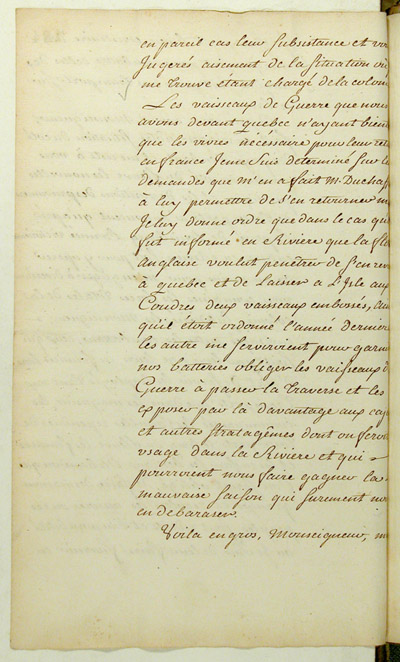 en pareil cas leur subsistance et vou
Jugerés aisement de la Situation ou
me trouve étant chargé de la colon
Les vaisseaux de Guerre que nous
avons devant quebec n'ayant bien
que les vivres nécessaire pour leur ret
en france Je me Suis determiné Sur le
demandes que m'en a fait M. Duchaff
à luy permettre de S'en retourner m
Je luy donne ordre que dans le cas qu
fut informé en Riviere que la fl
anglaise voulut penêtrer de S'en re
à quebec et de Laisser a L'Isle aux
Coudres deux vaisseaux embossés,
qu'il étoit ordonné l'année derniere
les autre me serviroient pour garn
nos batteries obliger les vaisseaux d
Guerre à passer la traverse et les
exposer par là davantage aux caj
et autres stratagêmes dont on feroi
usage dans la Riviere et qui
pourroient nous faire gagner la
mauvaise saison qui surement no
en debaraser.
Voila en gros, Monseigneur,